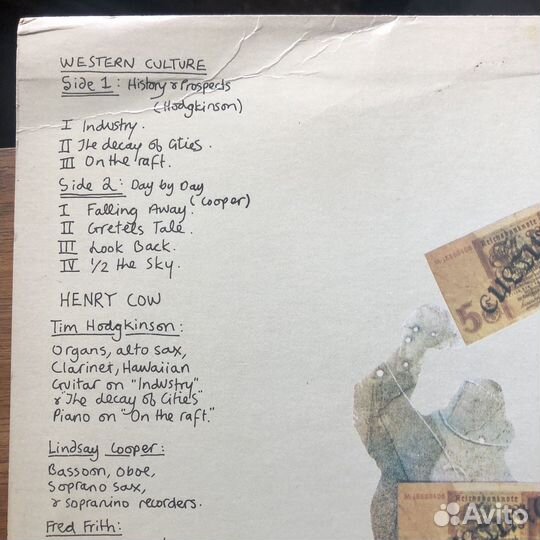 WESTERN CULTURE
Side 1: History & Prospects
(Hodgkinson)
I Industry.
II The decay of Cities.
III On the raft.
Side 2: Day by Day
(Cooper)
I Falling Away.
II Gretels Tale.
III Look Back.
IV 1/2 the Sky.
HENRY COW
Tim Hodgkinson:
Organs, alto sax,
Clarinet, Hawaiian
Guitar on "Industry"
& "The decay of Cities"
Piano on "On the raft."
Lindsay Cooper:
Bassoon, oboe,
Soprano sax,
& sopranino recorders.
Fred Frith:
Reichsbanknote
50
Reichsbanknote
Avito